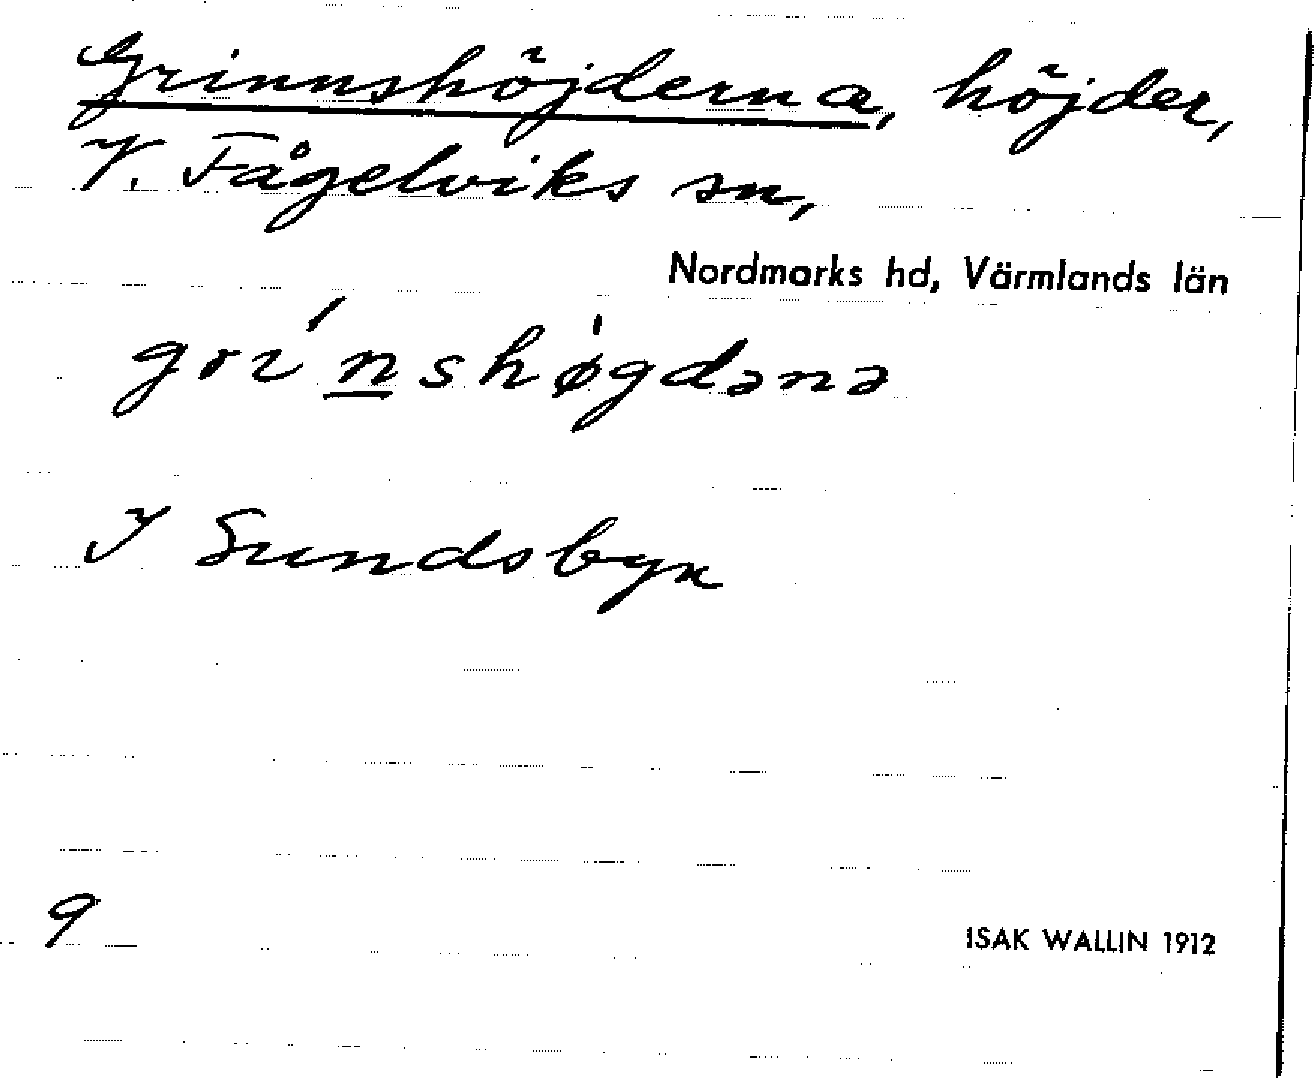 Grinnshöjderna, höjder,
V. Fågelviks sn,
Nordmarks hd, Värmlands län
grı́nshø̍gdənə
I Sundsbyn
9
ISAK WALLIN 1912